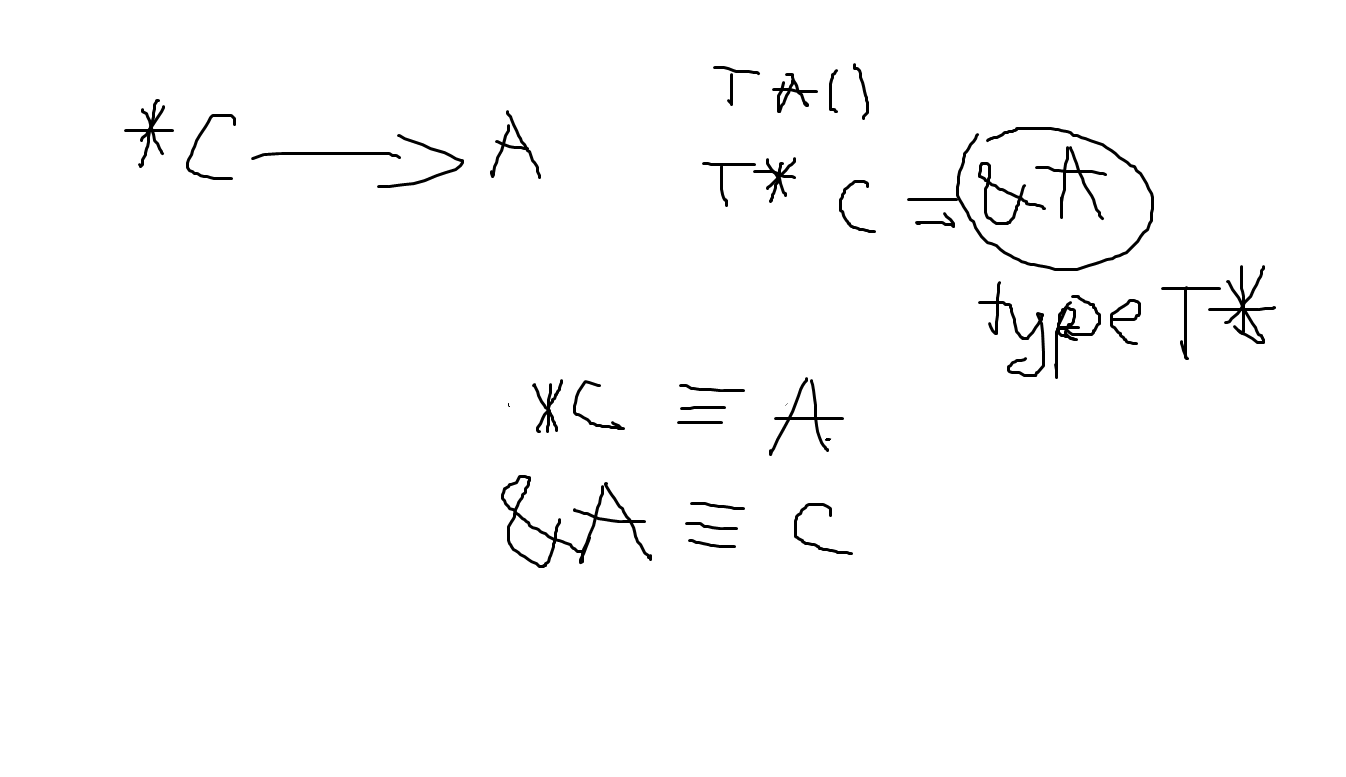 *C → A
T A()
T* C = &A
type T*
*C ≡ A
&A ≡ C